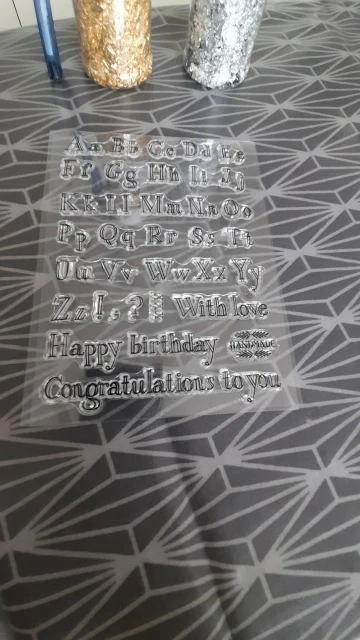 Aa Bb Cc Dd Ee
Ff Gg Hh Ii Jj
Kk Ll Mm Nn Oo
Pp Qq Rr Ss Tt
Uu Vv Ww Xx Yy
Zz ! . ? With love
Happy birthday HANDMADE
Congratulations to you